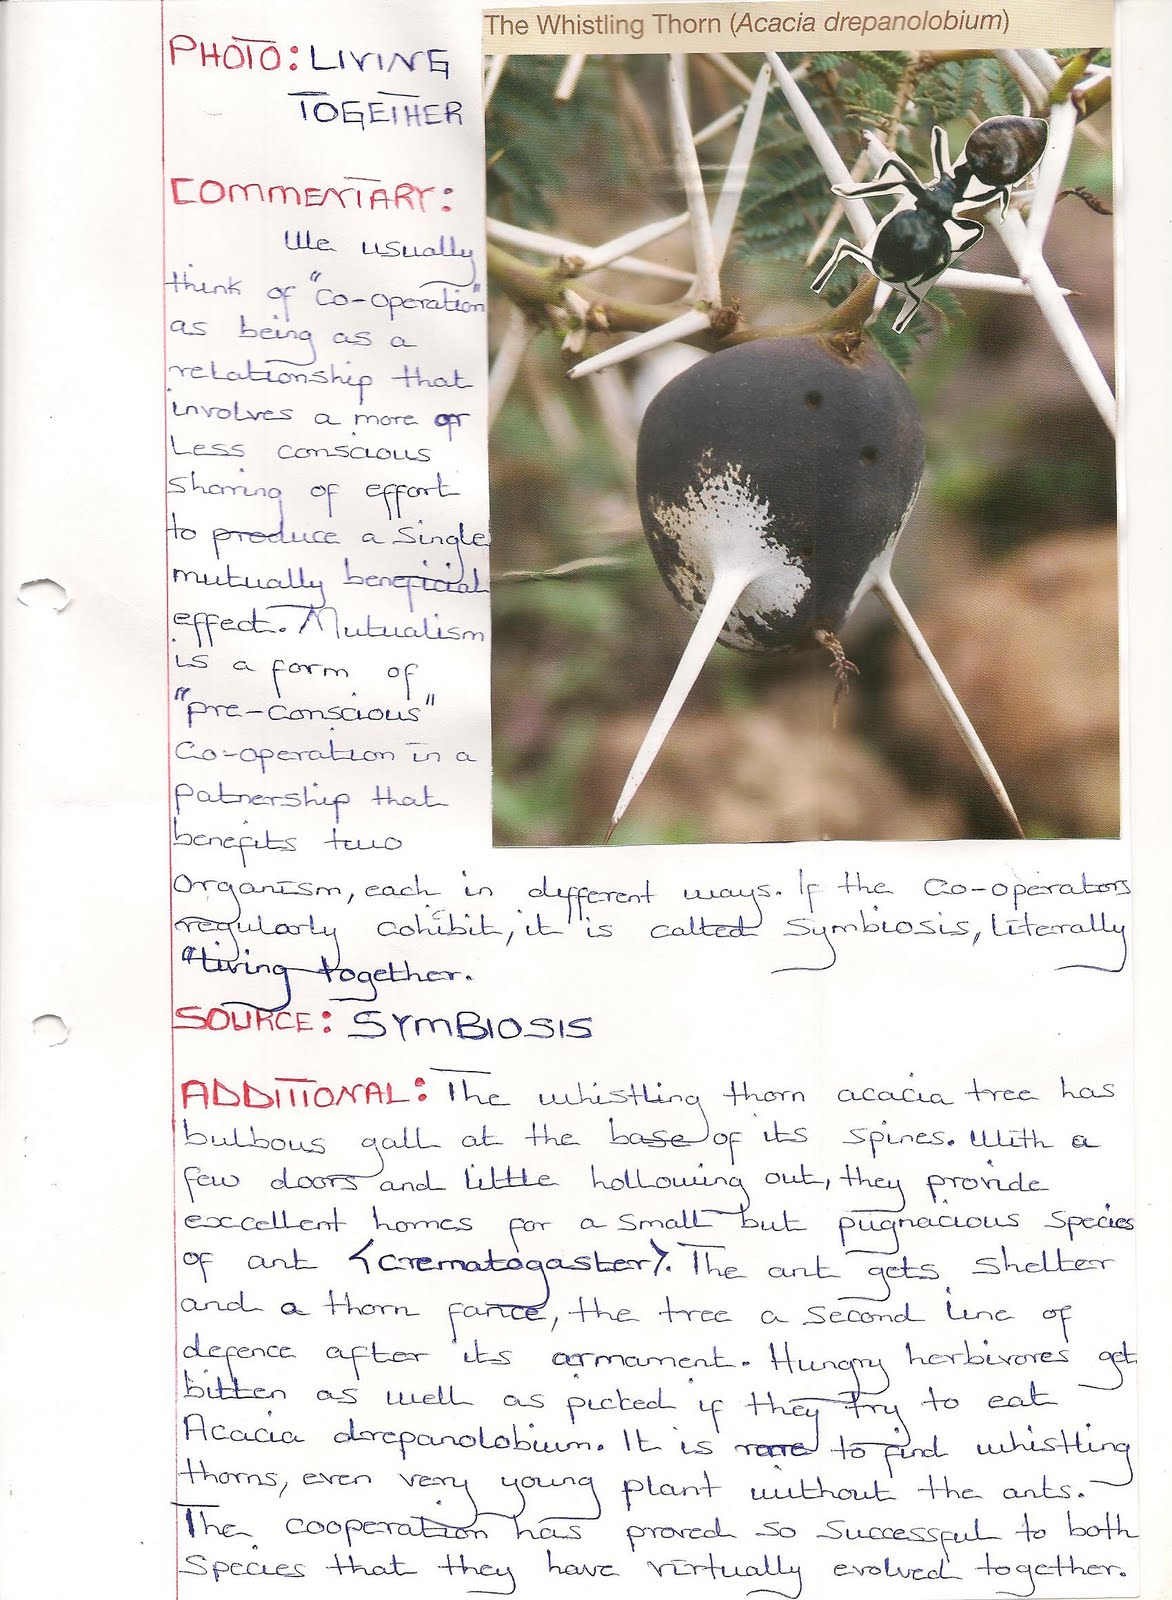 The Whistling Thorn (Acacia drepanolobium)
PHOTO: LIVING
TOGETHER
COMMENTARY:
We usually
think of "co-operation"
as being as a
relationship that
involves a more or
less conscious
sharing of effort
to produce a single
mutually beneficial
effect. Mutualism
is a form of
"pre-conscious"
Co-operation in a
patnership that
benefits two
organism, each in different ways. If the co-operators
regularly cohibit, it is called symbiosis, literally
"living together.
SOURCE: SYMBIOSIS
ADDITIONAL: The whistling thorn acacia tree has
bulbous gall at the base of its spines. With a
few doors and little hollowing out, they provide
excellent homes for a small but pugnacious species
of ant (crematogaster). The ant gets shelter
and a thorn fance, the tree a second line of
defence after its armament. Hungry herbivores get
bitten as well as picked if they try to eat
Acacia drepanolobium. It is rare to find whistling
thorns, even very young plant without the ants.
The cooperation has proved so successful to both
species that they have virtually evolved together.